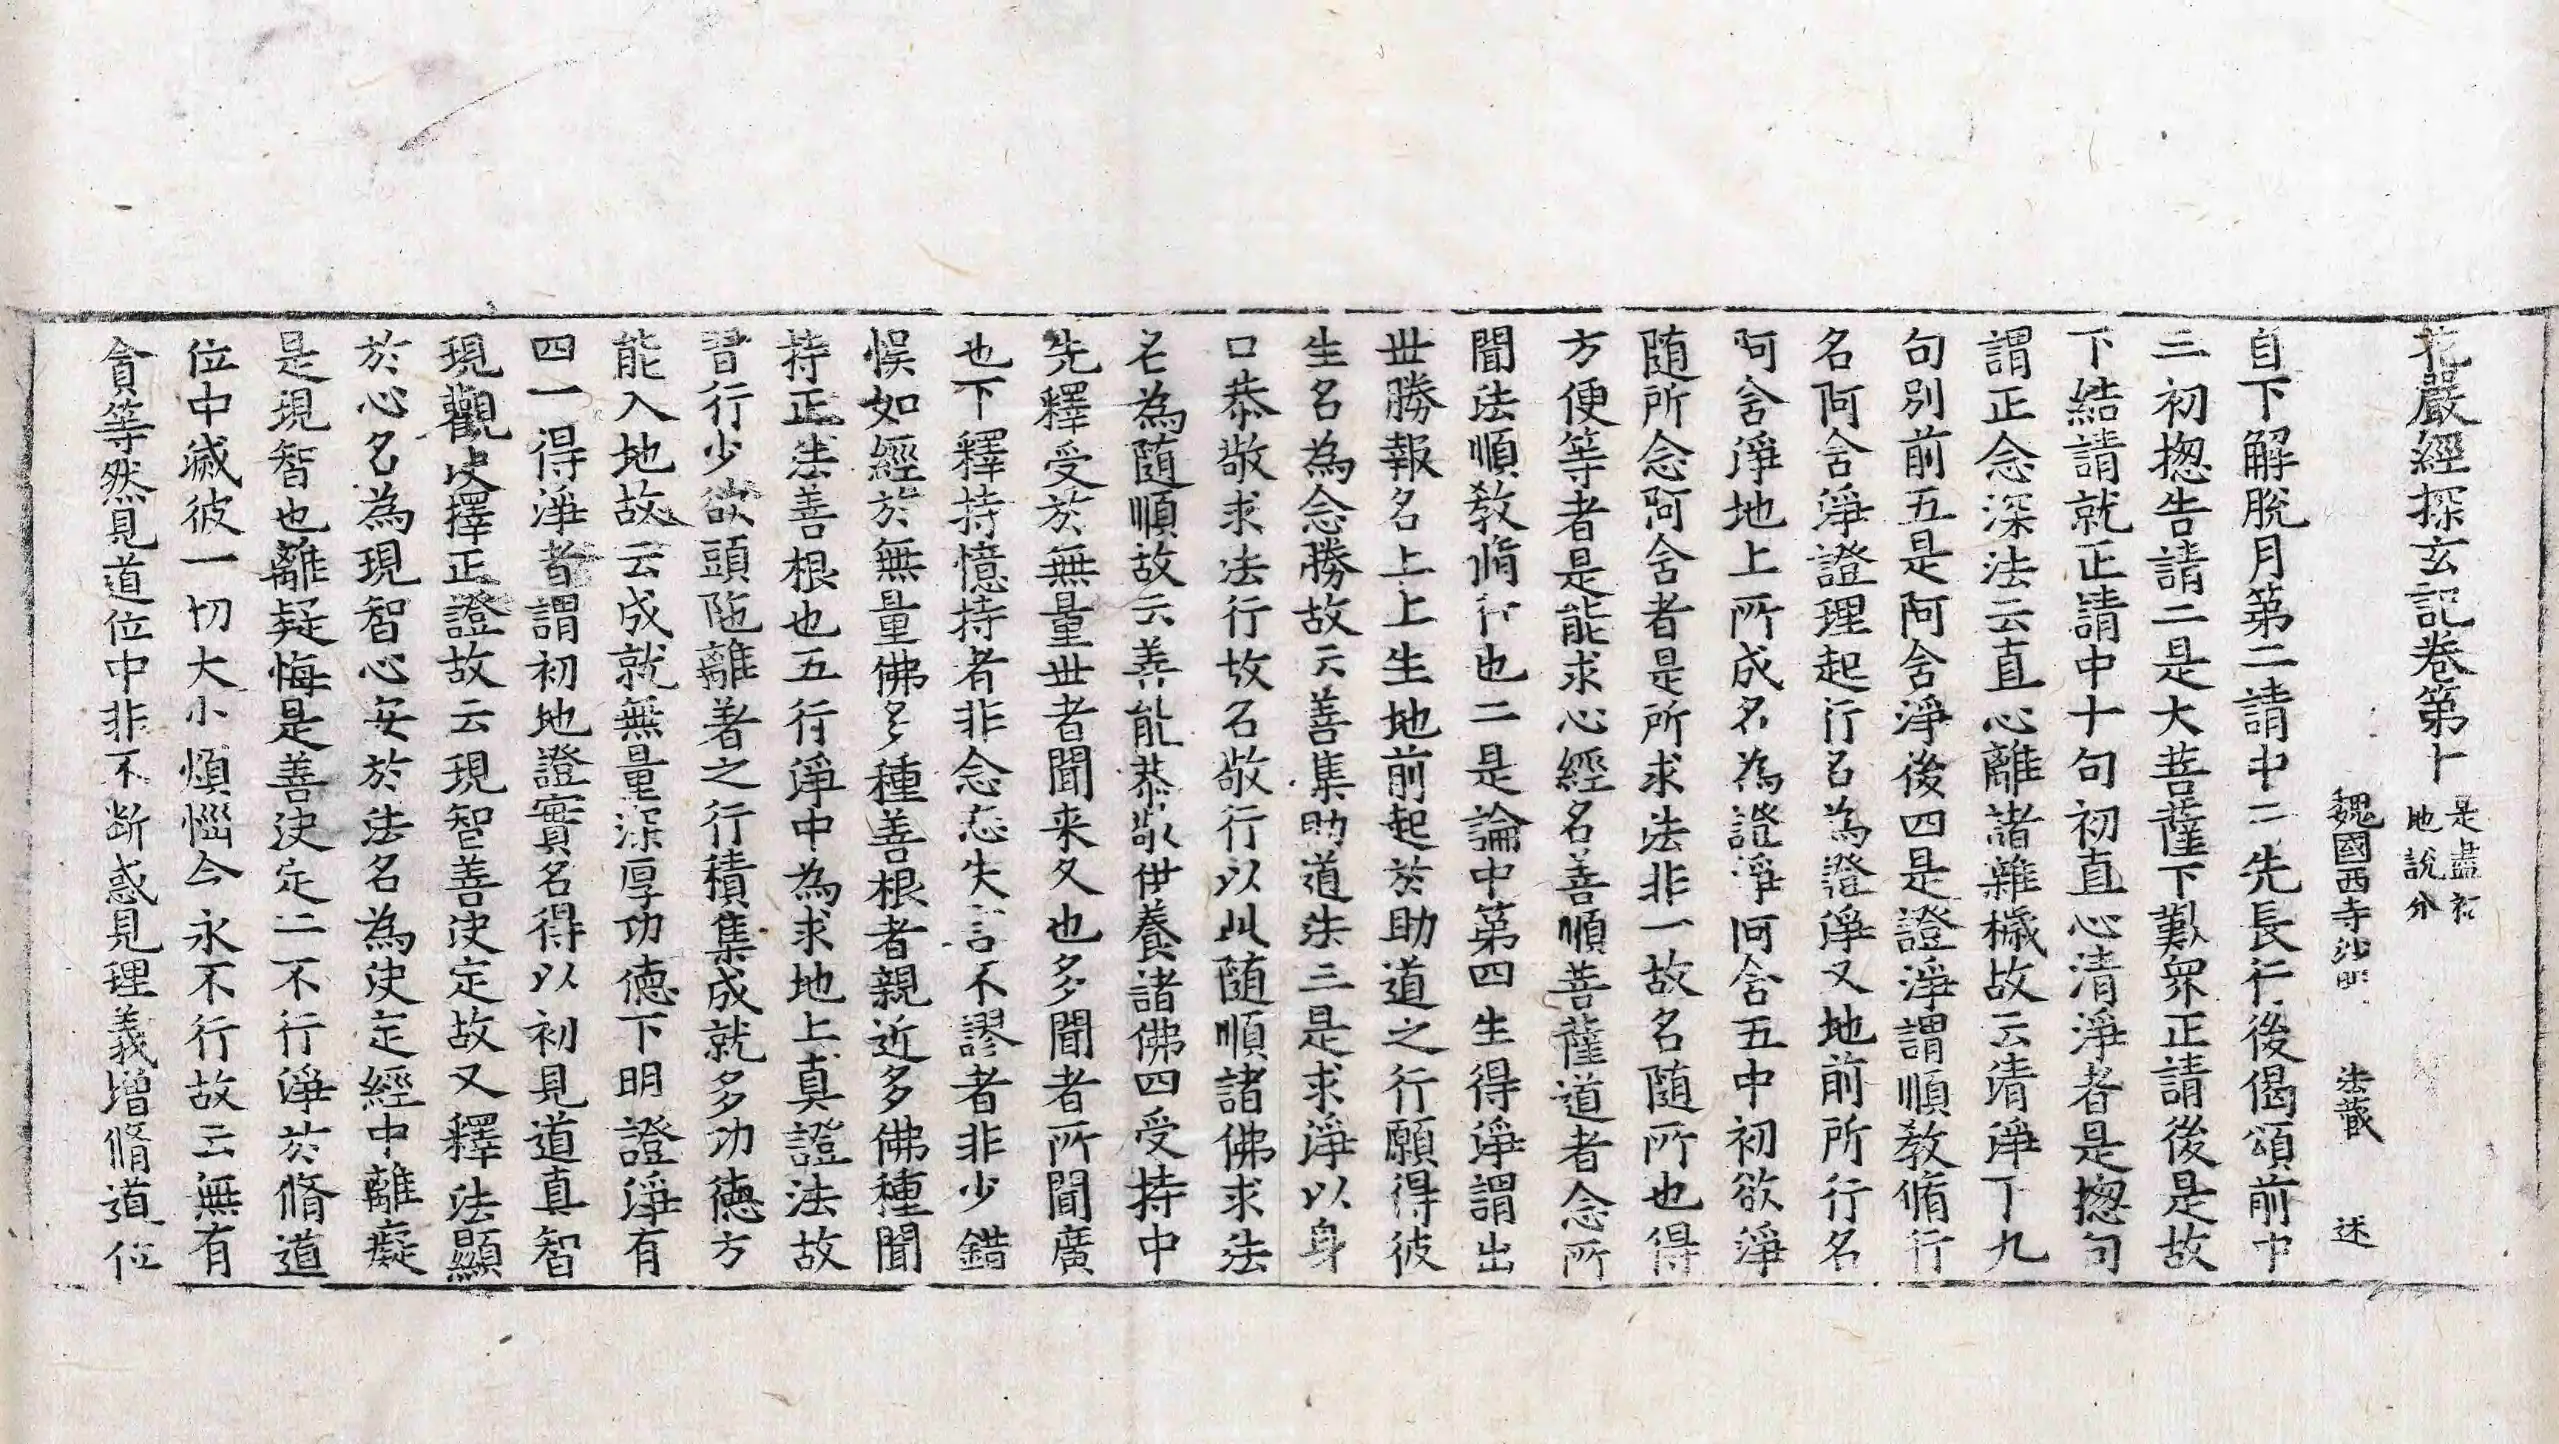 花嚴經探玄記卷第十 是盡初地說分
魏國西寺沙門 法藏 述
自下解脫月第二請中二先長行後偈頌前中
三初揔告請二是大菩薩下歎衆正請後是故
下結請就正請中十句初直心清淨者是揔句
謂正念深法云直心離諸雜穢故云清淨下九
句別前五是阿含淨後四是證淨謂順教脩行
名阿含淨證理起行名為證淨又地前所行名
阿含淨地上所成名為證淨阿含五中初欲淨
随所念阿含者是所求法非一故名随所也得
方便等者是能求心經名善順菩薩道者念所
聞法順教脩行也二是論中第四生得淨謂出
丗勝報名上上生地前起於助道之行願得彼
生名為念勝故云善集助道法三是求淨以身
口恭敬求法行故名敬行以此随順諸佛求法
名為随順故云善能恭敬供養諸佛四受持中
先釋受於無量丗者聞来久也多聞者所聞廣
也下釋持憶持者非念忘失言不謬者非少錯
悮如經於無量佛多種善根者親近多佛種聞
持正法善根也五行淨中為求地上真證法故
習行少欲頭陁離著之行積集成就多功德方
能入地故云成就無量深厚功德下明證淨有
四一得淨者謂初地證實名得以初見道真智
現觀决擇正證故云現智善决定故又釋法顯
於心名為現智心安於法名為决定經中離癡
是現智也離疑悔是善决定二不行淨於脩道
位中滅彼一切大小煩惱今永不行故云無有
貪等然見道位中非不断惑見理義增脩道位